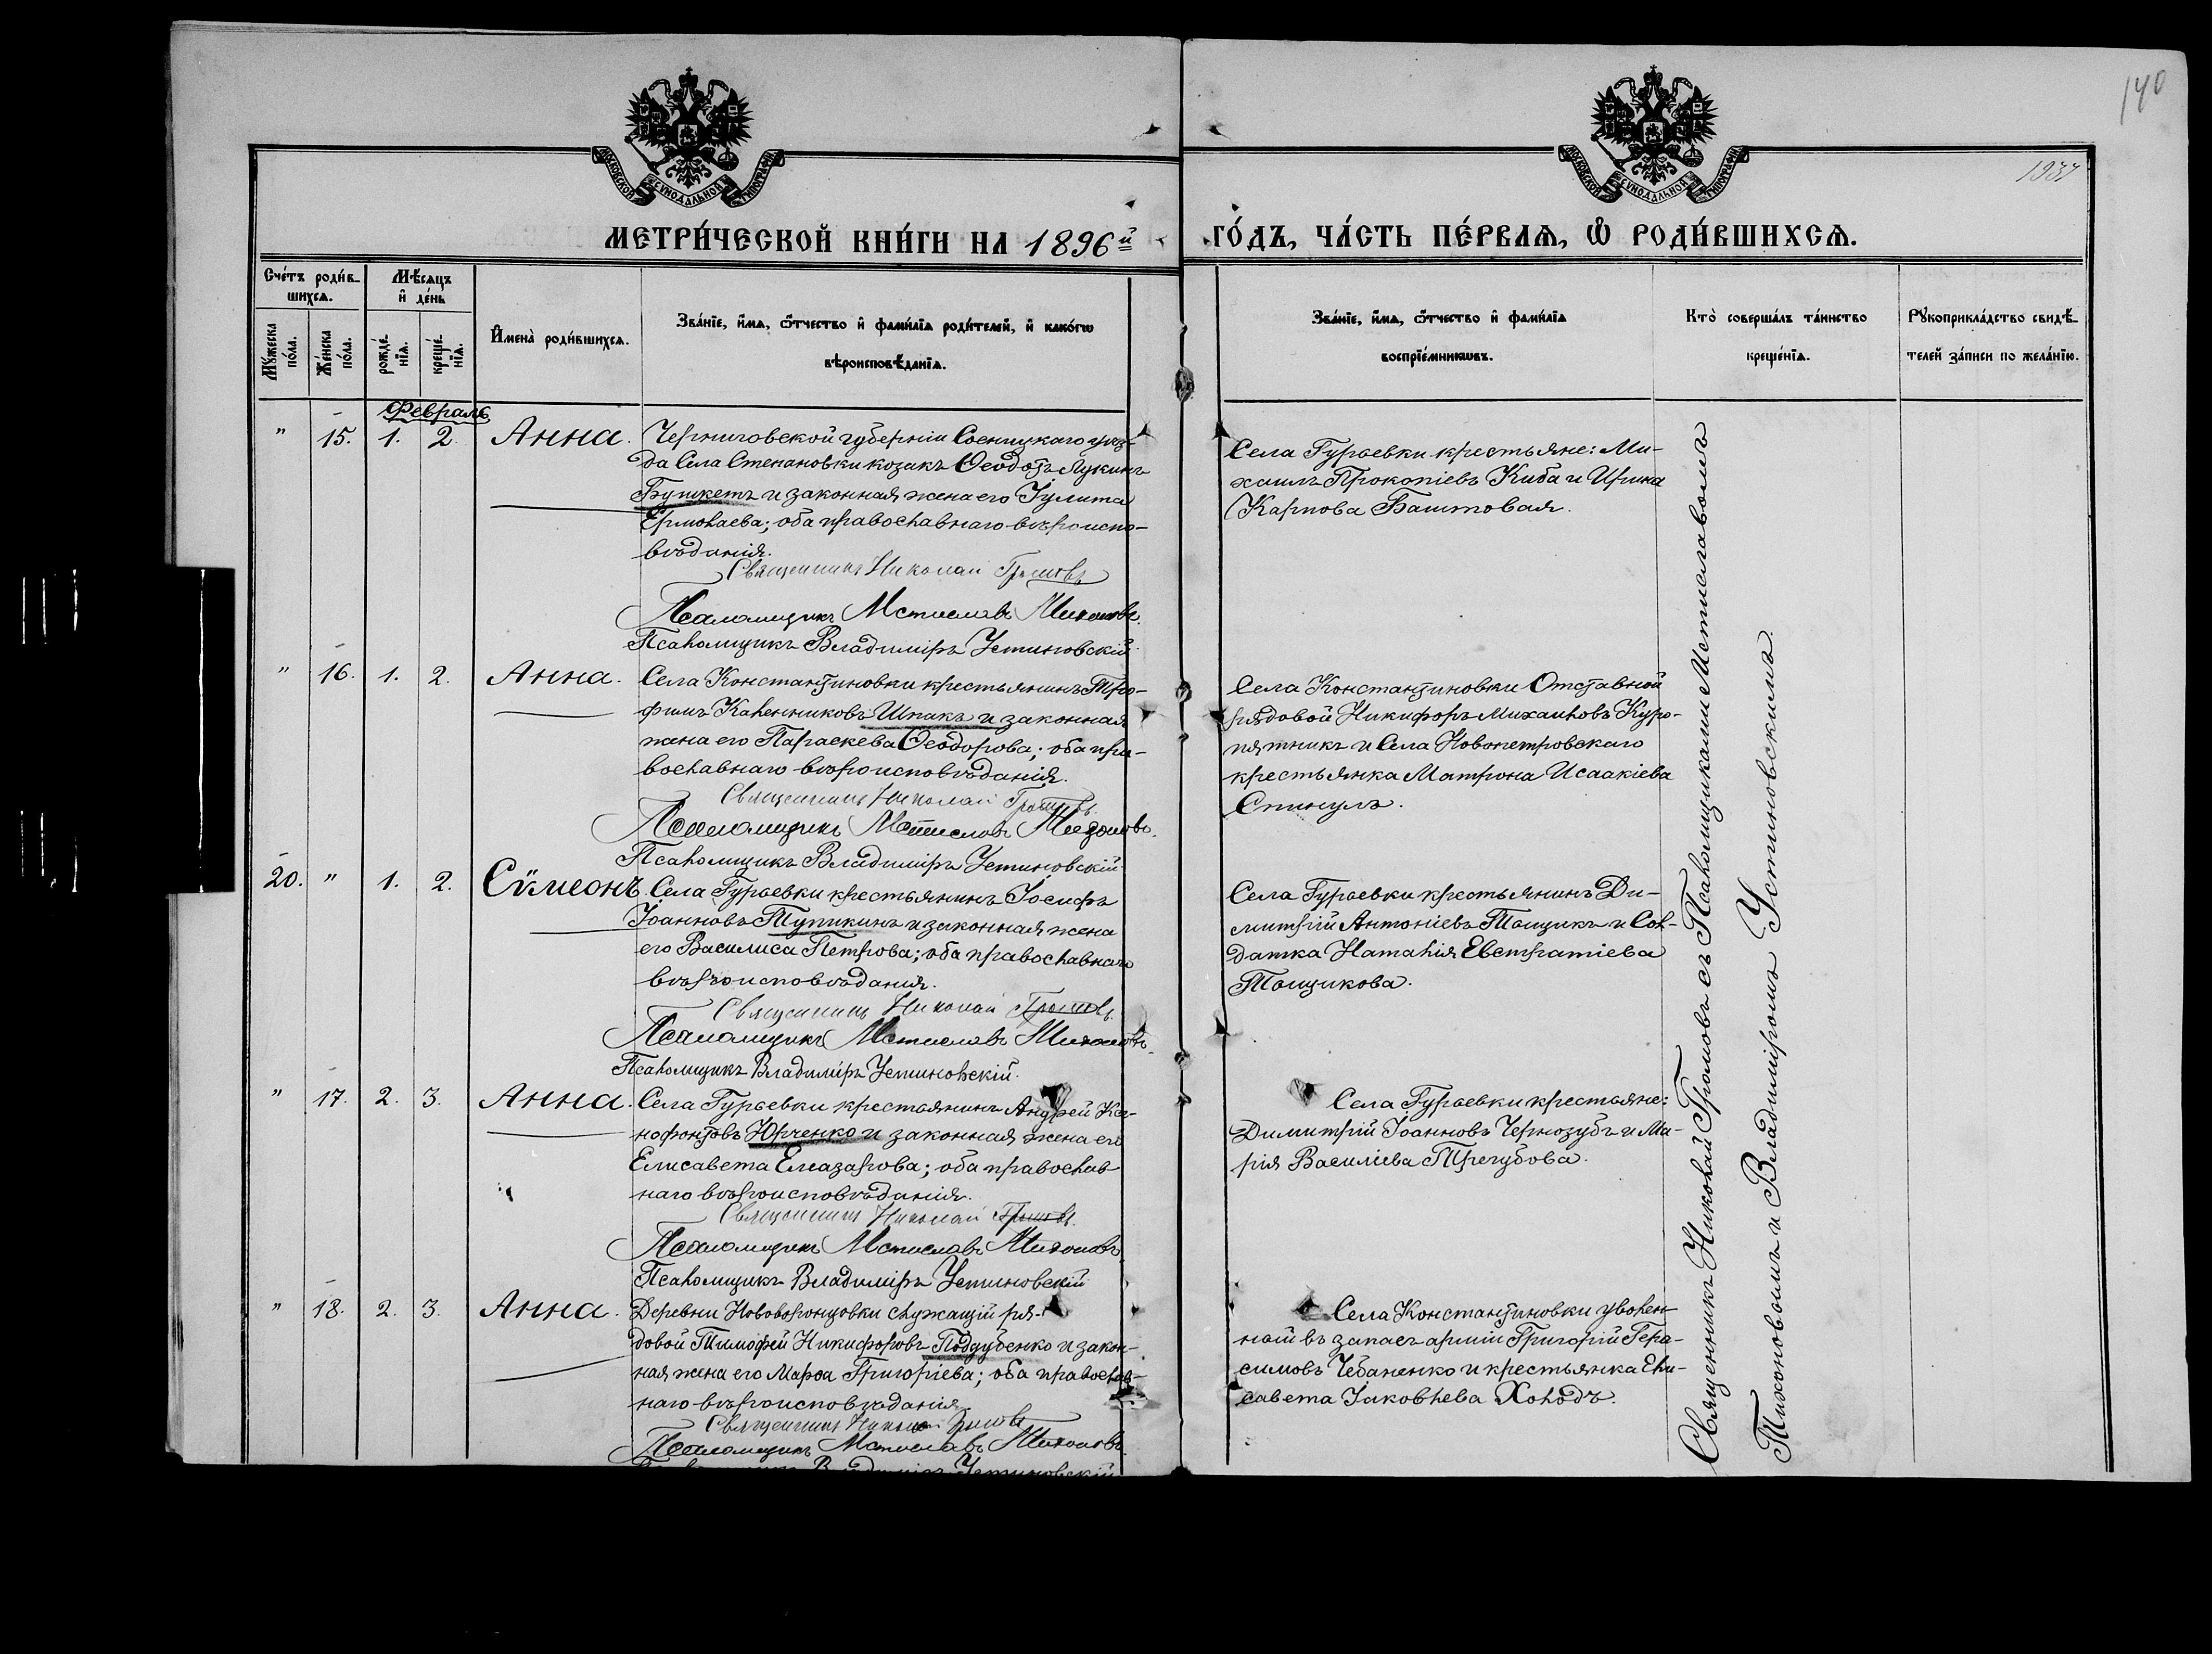 140
1937
МОСКОВСКОЙ СУНОДАЛЬНОЙ ТИПОГРАФІИ
МОСКОВСКОЙ СУНОДАЛЬНОЙ ТИПОГРАФІИ
МЕТРИ́ЧЕСКОЙ КНИ́ГИ НА 1896й
ГО́ДЪ, ЧА́СТЬ ПЕ́РВАѦ, Ѽ РОДИ́ВШИХСѦ.
Сче́тъ роди́в-
шихсѧ.
Мꙋжеска по́ла.
Же́нска по́ла.
Мѣ́сѧцъ
и҆ де́нь
рожде́-
нїѧ.
креще́-
нїѧ.
И҆мена̀ роди́вшихсѧ.
Зва́нїе, и҆́мѧ, ѻ҆́тчество и҆ фами́лїѧ роди́телей, и҆ како́гѡ
вѣроисповѣ́данїѧ.
Зва́нїе, и҆́мѧ, ѻ҆́тчество и҆ фами́лїѧ
воспрїе́мникѡвъ.
Кто̀ соверша́лъ та́инство
креще́нїѧ.
Рꙋкоприкла́дство свидѣ́-
телей за́писи по жела́нїю.
Февраль
" 15. 1. 2. Анна.
Черниговской губерніи Сосницкаго уѣз-
да Села Степановки козакъ Ѳеодотъ Лукинъ
Бушкетъ и законная жена его Іулита
Ермолаева; оба православнаго вѣроиспо-
вѣданія.
Священникъ Николай Громовъ
Псаломщикъ Мстиславъ Тихоновъ.
Псаломщикъ Владиміръ Устиновскій.
Села Гурьевки крестьяне: Ми-
хаилъ Прокопіевъ Киба и Ирина
Карпова Баштовая.
" 16. 1. 2. Анна.
Села Константиновки крестьянинъ Тро-
фимъ Каленниковъ Шпакъ и законная
жена его Параскева Ѳеодорова; оба пра-
вославнаго вѣроисповѣданія.
Священникъ Николай Громовъ
Псаломщикъ Мстиславъ Тихоновъ.
Псаломщикъ Владиміръ Устиновскій
Села Константиновки Отставной
рядовой Никифоръ Михаиловъ Куро-
пятникъ и Села Новопетровскаго
крестьянка Матрона Исаакіева
Спинулъ.
20. " 1. 2. Сѷмеонъ.
Села Гурьевки крестьянинъ Іосифъ
Іоанновъ Тупикинъ и законная жена
его Василиса Петрова; оба православнаго
вѣроисповѣданія.
Священникъ Николай Громовъ.
Псаломщикъ Мстиславъ Тихоновъ.
Псаломщикъ Владиміръ Устиновскій.
Села Гурьевки крестьянинъ Ди-
митрій Антоніевъ Тощикъ и Сол-
датка Наталія Евстратіева
Тощикова.
" 17. 2. 3. Анна.
Села Гурьевки крестьянинъ Андрей Ксе-
нофонтовъ Юрченко и законная жена его
Елисавета Елеазарова; оба православ-
наго вѣроисповѣданія.
Священникъ Николай Громовъ.
Псаломщикъ Мстиславъ Тихоновъ
Псаломщикъ Владиміръ Устиновскій
Села Гурьевки крестьяне:
Димитрій Іоанновъ Чернозубъ и Ма-
рія Василіева Трегубова.
" 18. 2. 3. Анна.
Деревни Нововоронцовки служащій ря-
довой Тимофей Никифоровъ Поддубенко и закон-
ная жена его Марѳа Григоріева; оба православ-
наго вѣроисповѣданія.
Священникъ Николай Громовъ
Псаломщикъ Мстиславъ Тихоновъ
Псаломщикъ Владиміръ Устиновскій
Села Константиновки уволен-
ный въ запасъ арміи Григорій Гера-
симовъ Чебаненко и крестьянка Ели-
савета Іаковлева Холодъ.
Священникъ Николай Громовъ съ Псаломщиками Мстиславомъ
Тихоновымъ и Владиміромъ Устиновскимъ.